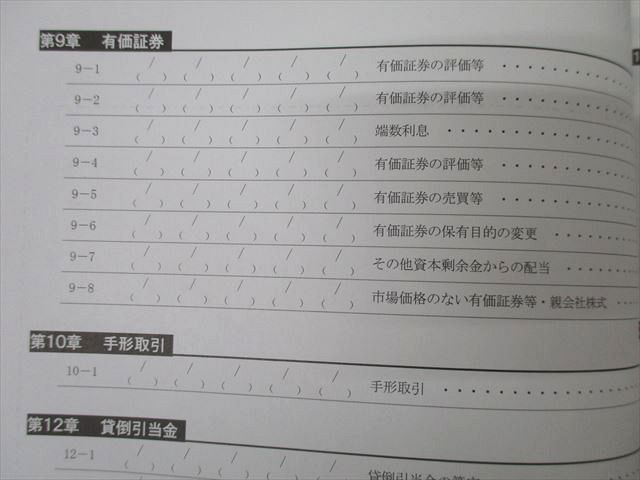 第9章 有価証券
9-1 / / / / / ( ) ( ) ( ) ( ) ( ) 有価証券の評価等 ・・・・・・・・・・
9-2 / / / / / ( ) ( ) ( ) ( ) ( ) 有価証券の評価等 ・・・・・・・・・・
9-3 / / / / / ( ) ( ) ( ) ( ) ( ) 端数利息 ・・・・・・・・・・・・・・
9-4 / / / / / ( ) ( ) ( ) ( ) ( ) 有価証券の評価等 ・・・・・・・・・・
9-5 / / / / / ( ) ( ) ( ) ( ) ( ) 有価証券の売買等 ・・・・・・・・・・
9-6 / / / / / ( ) ( ) ( ) ( ) ( ) 有価証券の保有目的の変更 ・・・・・・・
9-7 / / / / / ( ) ( ) ( ) ( ) ( ) その他資本剰余金からの配当 ・・・・・・
9-8 / / / / / ( ) ( ) ( ) ( ) ( ) 市場価格のない有価証券等・親会社株式 ・・・
第10章 手形取引
10-1 / / / / / ( ) ( ) ( ) ( ) ( ) 手形取引 ・・・・・・・・・・・・・・
第12章 貸倒引当金
12-1 / / / / / ( ) ( ) ( ) ( ) ( ) 貸倒引当金の